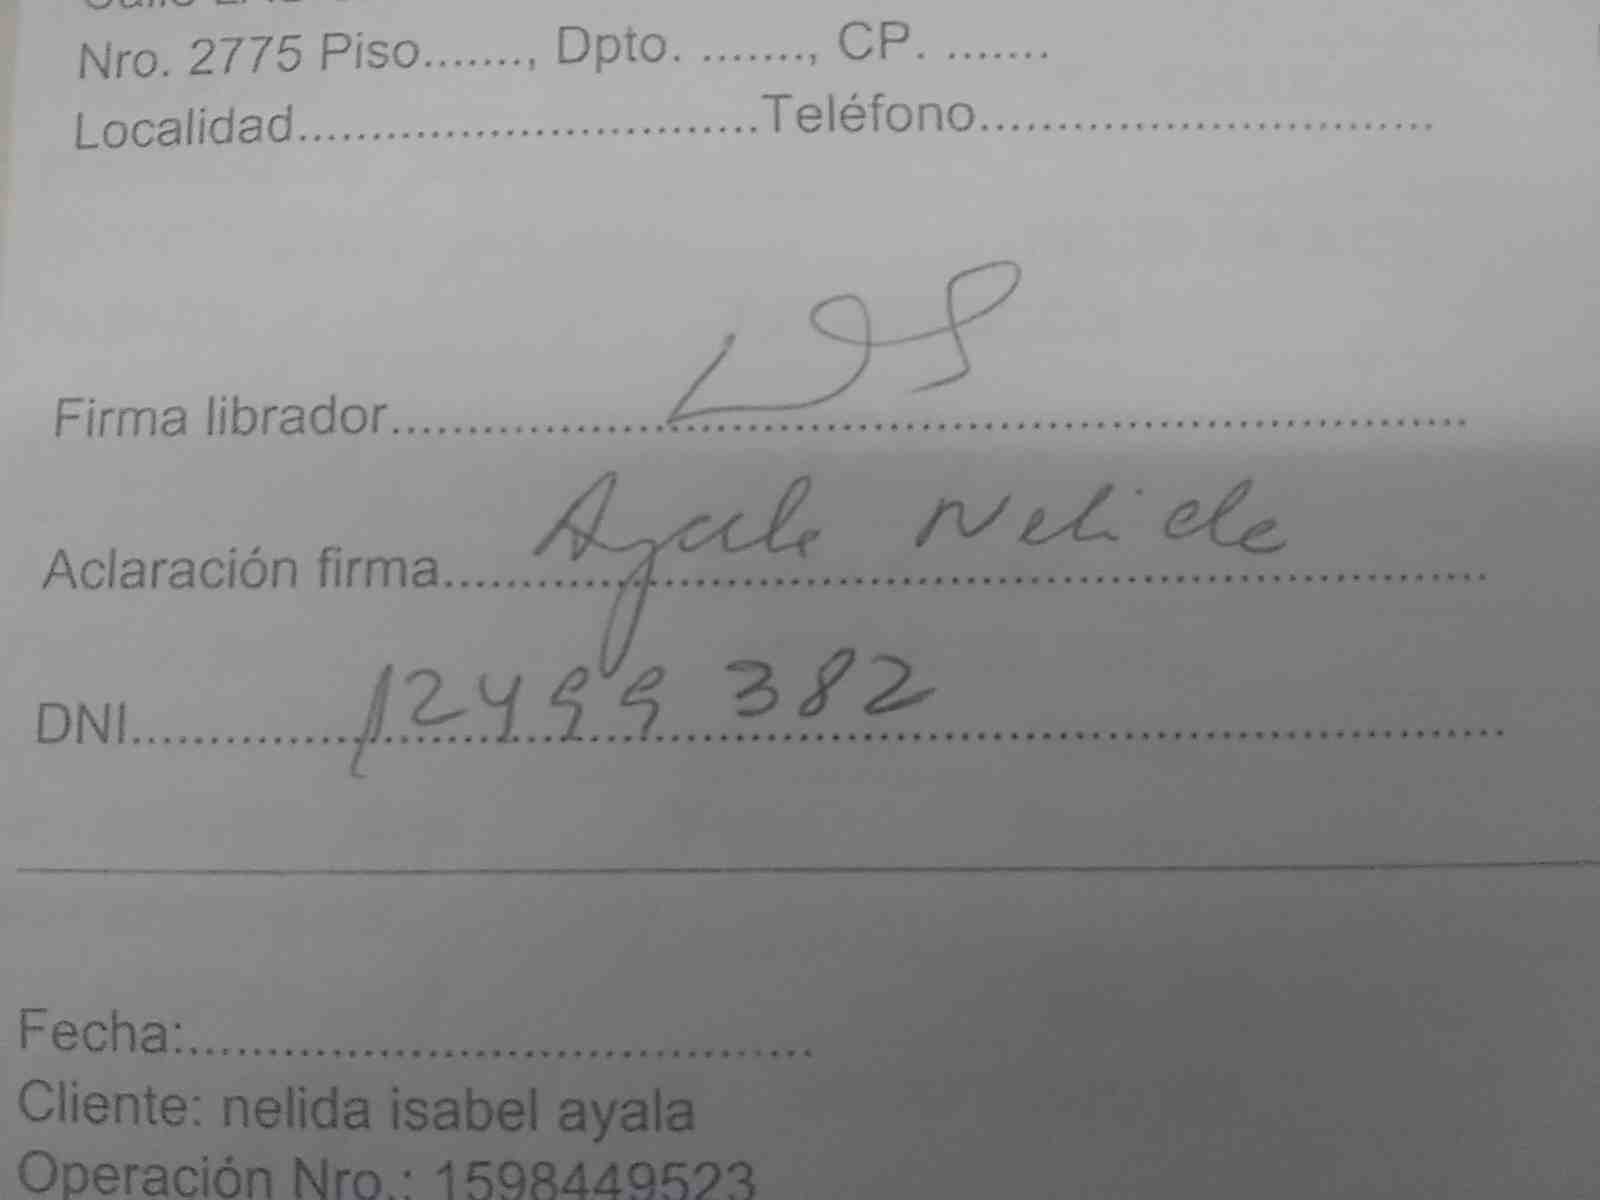 Nro. 2775 Piso......., Dpto. ......., CP. .......
Localidad..............................Teléfono..............................
Firma librador......................................................................
Aclaración firma.......Ayala Nelida.......
DNI...............12499382...............
Fecha:.........................................
Cliente: nelida isabel ayala
Operación Nro.: 1598449523